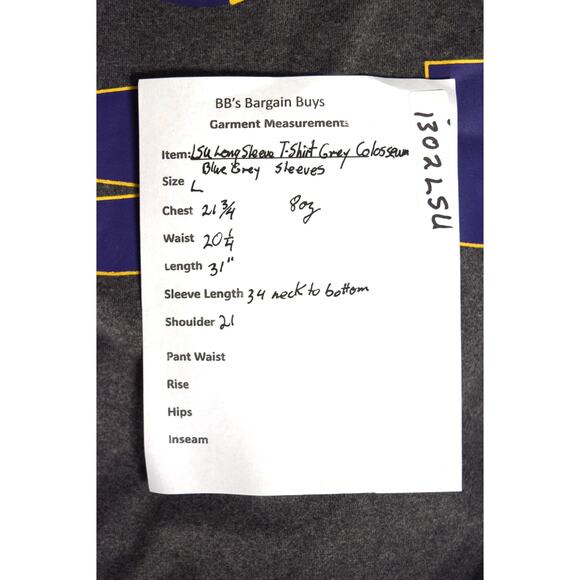 BB's Bargain Buys
Garment Measurements
Item: LSU Long Sleeve T-Shirt Grey Colosseum
Blue Grey Sleeves
Size L
Chest 21 3/4 8oz
Waist 20 1/4
Length 31"
Sleeve Length 34 neck to bottom
Shoulder 21
Pant Waist
Rise
Hips
Inseam
1302LSU